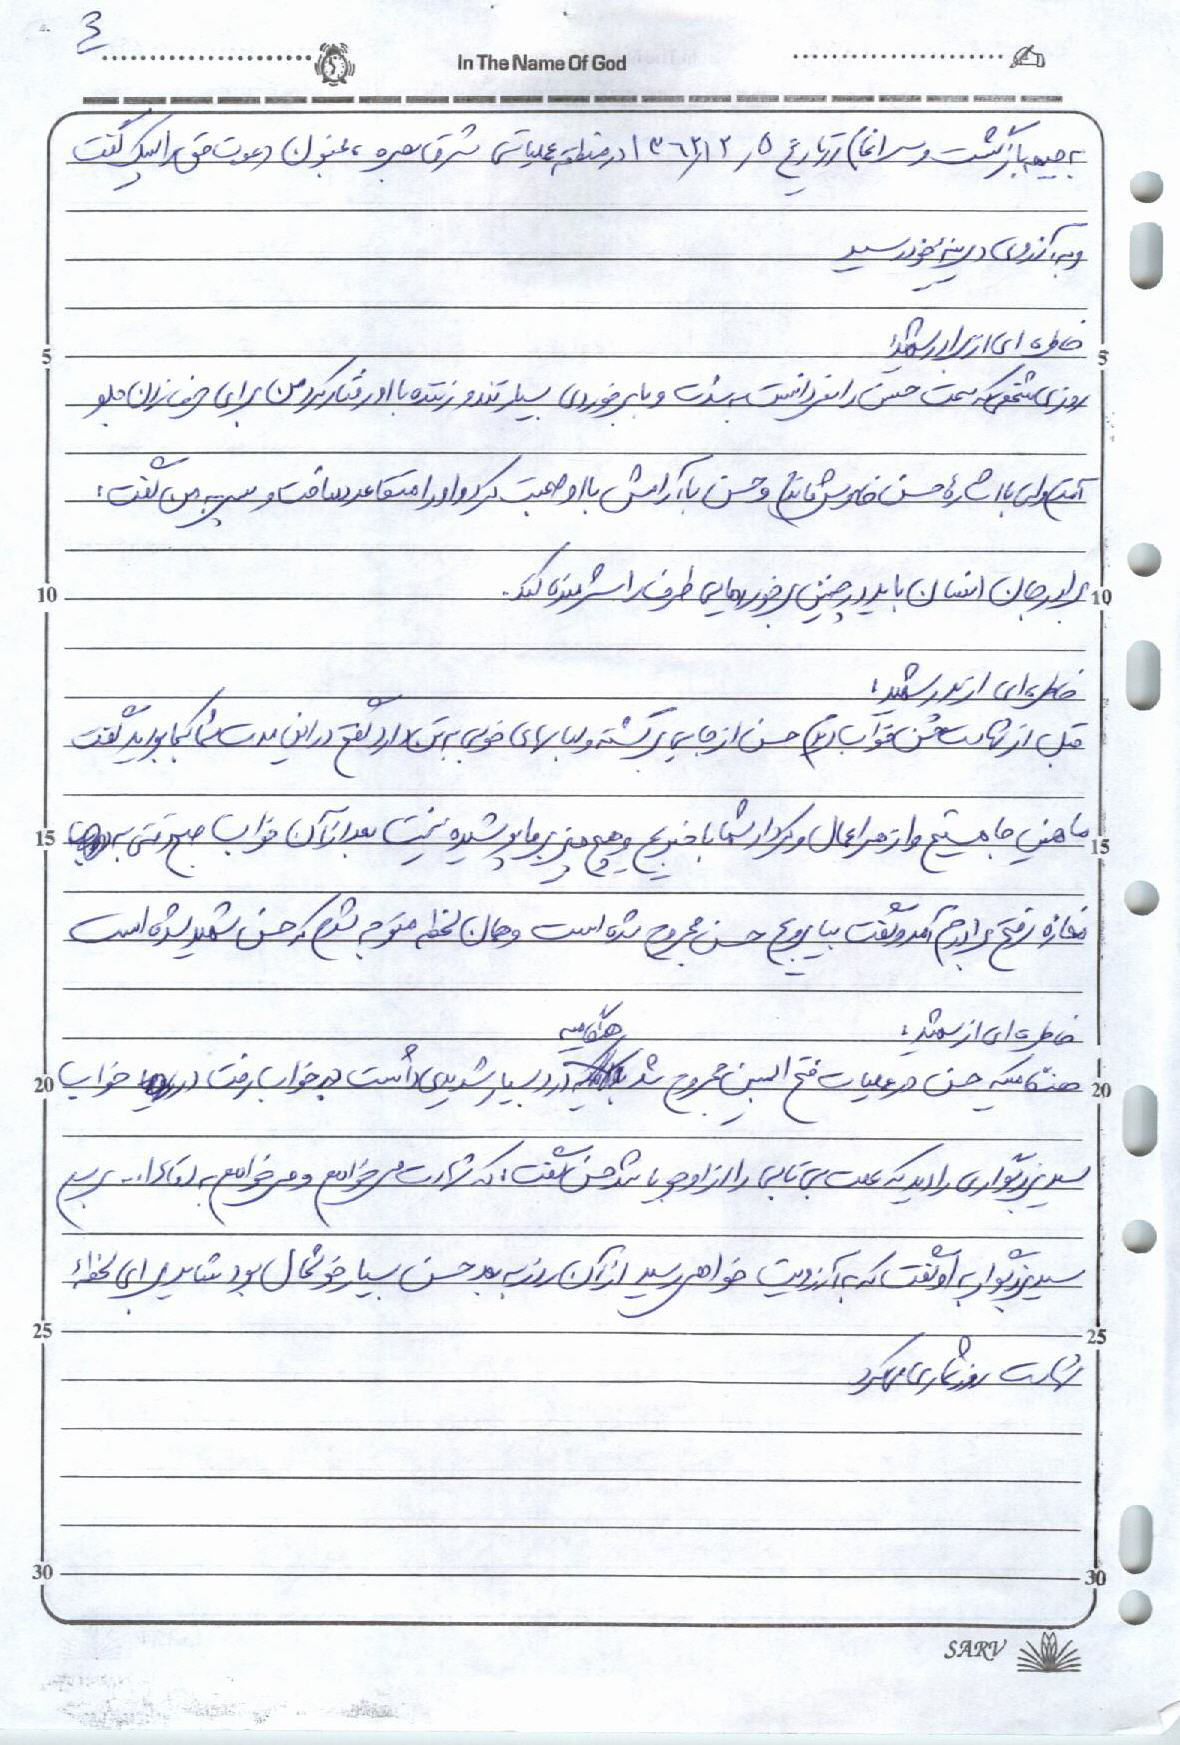 ۳
In The Name Of God
به جبهه بازگشت و سرانجام در تاریخ ۱۳۶۲/۱۲/۵ در منطقه عملیاتی شرق بصره، دعوت حق را لبیک گفت
و به آرزوی دیرینه خود رسید
خاطره ای از برادر شهید:
روزی شخصی که سمت حسن را نمی دانست به شدت و با برخوردی بسیار تند و زننده با او رفتار کرد من برای حرف زدن جلو
آمدم ولی با اشاره حسن خاموش ماندم و حسن با آرامش با او صحبت کرد و او را متقاعد ساخت و سپس به من گفت:
برادر جان انسان باید در چنین برخوردهایی طرف را شرمنده کند.
خاطره ای از پدر شهید:
قبل از شهادت حسن خواب دیدم حسن از جایی برگشته و لباسهای خوبی به تن دارد گفتم در این مدت شما کجا بودید گفت
ما همین جا هستیم و از همه اعمال و کردار شما با خبریم و هیچ چیز بر ما پوشیده نیست بعد از آن خواب صبح وقتی به
مغازه رفتم برادرم آمد و گفت بیا برویم حسن مجروح شده است و همان لحظه متوجه شدم که حسن شهید شده است
خاطره ای از شهید:
هنگامیکه
هنگامیکه حسن در عملیات فتح المبین مجروح شد درد بسیار شدیدی داشت به خواب رفت در خواب
سید بزرگواری را دید که علت بی تابی را از او جویا شد حسن گفت: که شهادت می خواهم و می خواهم به لقاءا... برسم
سید بزرگوار به او گفت که به آرزویت خواهی رسید از آن روز به بعد حسن بسیار خوشحال بود شاید برای لحظه
شهادت روزشماری می کرد
5
5
10
10
15
15
20
20
25
25
30
30
SARV